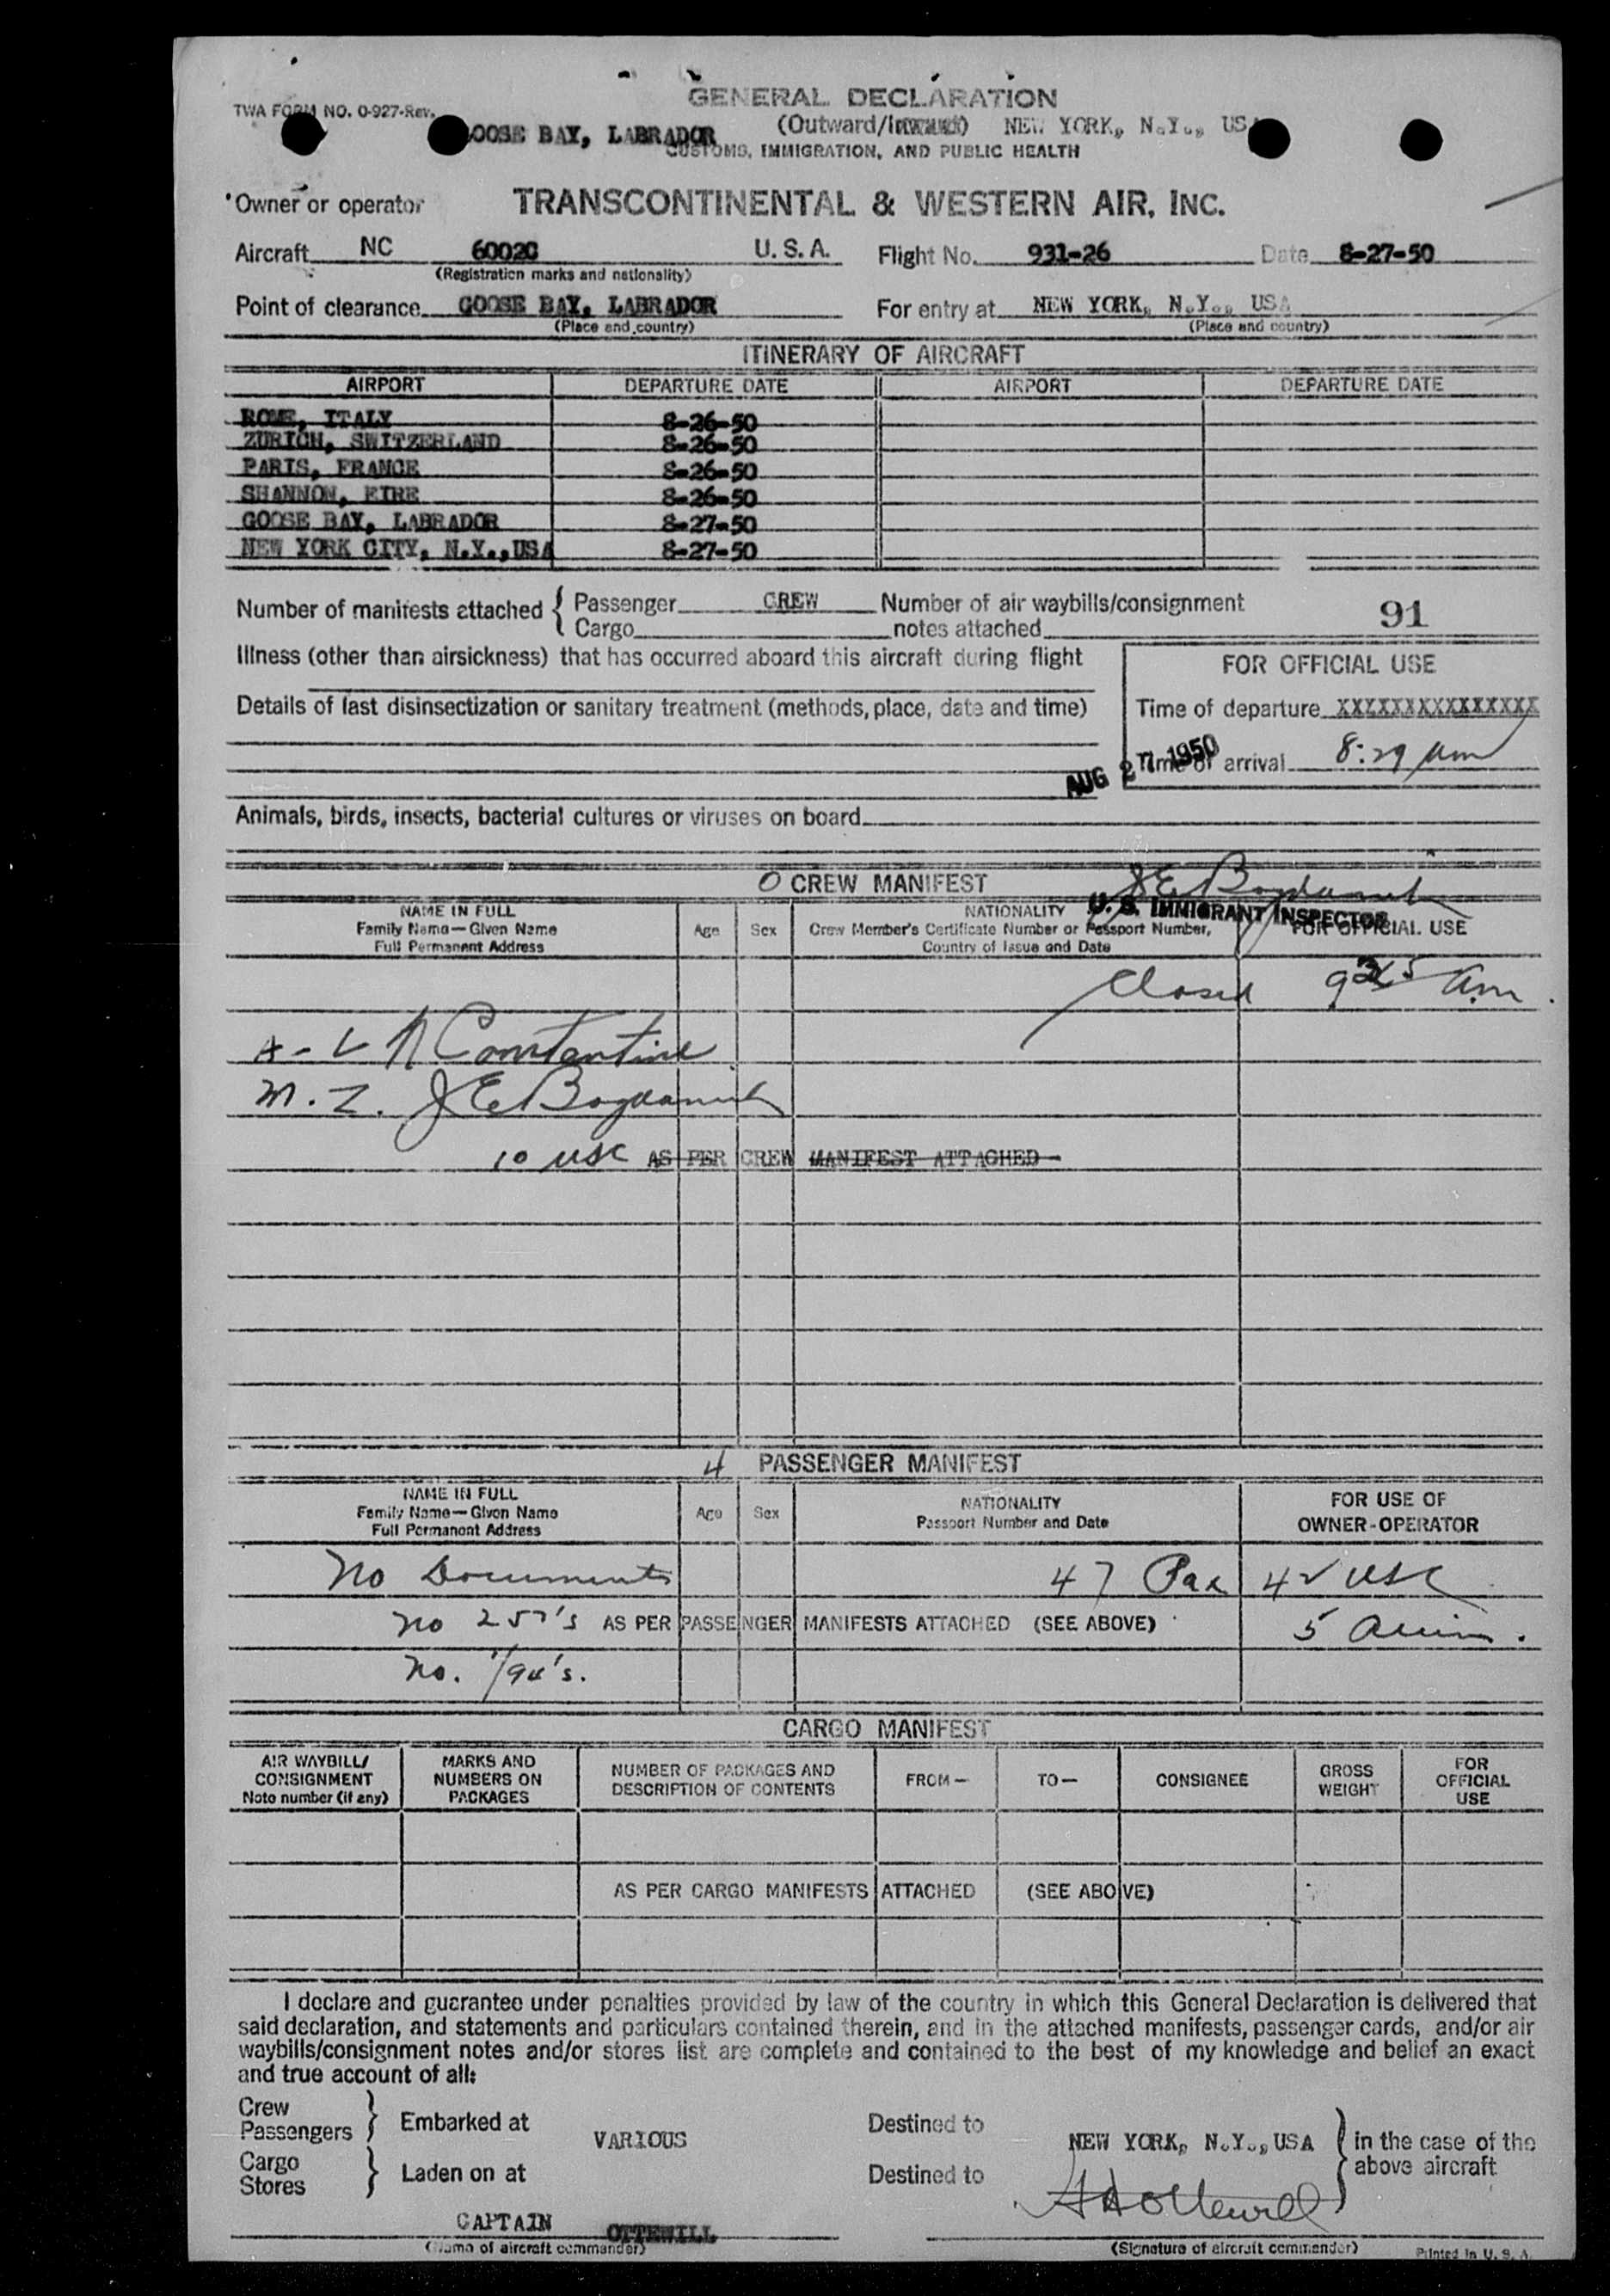 GENERAL DECLARATION
TWA FORM NO. O-927-Rev.
(Outward/Inward) NEW YORK, N.Y., USA
OOSE BAY, LABRADOR
CUSTOMS, IMMIGRATION, AND PUBLIC HEALTH
Owner or operator TRANSCONTINENTAL & WESTERN AIR, INC.
Aircraft NC 6002C U. S. A. Flight No. 931-26 Date 8-27-50
(Registration marks and nationality)
Point of clearance GOOSE BAY, LABRADOR For entry at NEW YORK, N.Y., USA
(Place and country) (Place and country)
ITINERARY OF AIRCRAFT
AIRPORT DEPARTURE DATE AIRPORT DEPARTURE DATE
ROME, ITALY 8-26-50
ZURICH, SWITZERLAND 8-26-50
PARIS, FRANCE 8-26-50
SHANNON, EIRE 8-26-50
GOOSE BAY, LABRADOR 8-27-50
NEW YORK CITY, N.Y.,USA 8-27-50
Number of manifests attached { Passenger CREW Number of air waybills/consignment 91
Cargo notes attached
Illness (other than airsickness) that has occurred aboard this aircraft during flight
FOR OFFICIAL USE
Details of last disinsectization or sanitary treatment (methods, place, date and time)
Time of departure XXXXXXXXXXXXXXX
AUG 27 1950
Time of arrival 8:29 am
Animals, birds, insects, bacterial cultures or viruses on board
0 CREW MANIFEST
J E Bogdanich
U. S. IMMIGRANT INSPECTOR
NAME IN FULL NATIONALITY
Family Name—Given Name Age Sex Crew Member's Certificate Number or Passport Number, FOR OFFICIAL USE
Full Permanent Address Country of Issue and Date
Closed am.
Constantine
J E Bogdanich
10 USC AS PER CREW MANIFEST ATTACHED-
4 PASSENGER MANIFEST
NAME IN FULL NATIONALITY FOR USE OF
Family Name—Given Name Age Sex Passport Number and Date OWNER-OPERATOR
Full Permanent Address
No Documents 47 Pax 42 USC
No 257's AS PER PASSENGER MANIFESTS ATTACHED (SEE ABOVE) 5 Aliens.
No. I/94's.
CARGO MANIFEST
AIR WAYBILL/ MARKS AND NUMBER OF PACKAGES AND FROM— TO— CONSIGNEE GROSS FOR
CONSIGNMENT NUMBERS ON DESCRIPTION OF CONTENTS WEIGHT OFFICIAL
Note number (if any) PACKAGES USE
AS PER CARGO MANIFESTS ATTACHED (SEE ABOVE)
I declare and guarantee under penalties provided by law of the country in which this General Declaration is delivered that
said declaration, and statements and particulars contained therein, and in the attached manifests, passenger cards, and/or air
waybills/consignment notes and/or stores list are complete and contained to the best of my knowledge and belief an exact
and true account of all:
Crew
Passengers } Embarked at VARIOUS Destined to NEW YORK, N.Y.,USA } in the case of the
Cargo above aircraft
Stores } Laden on at Destined to
CAPTAIN OTTEWILL
(Name of aircraft commander) (Signature of aircraft commander) Printed in U. S. A.